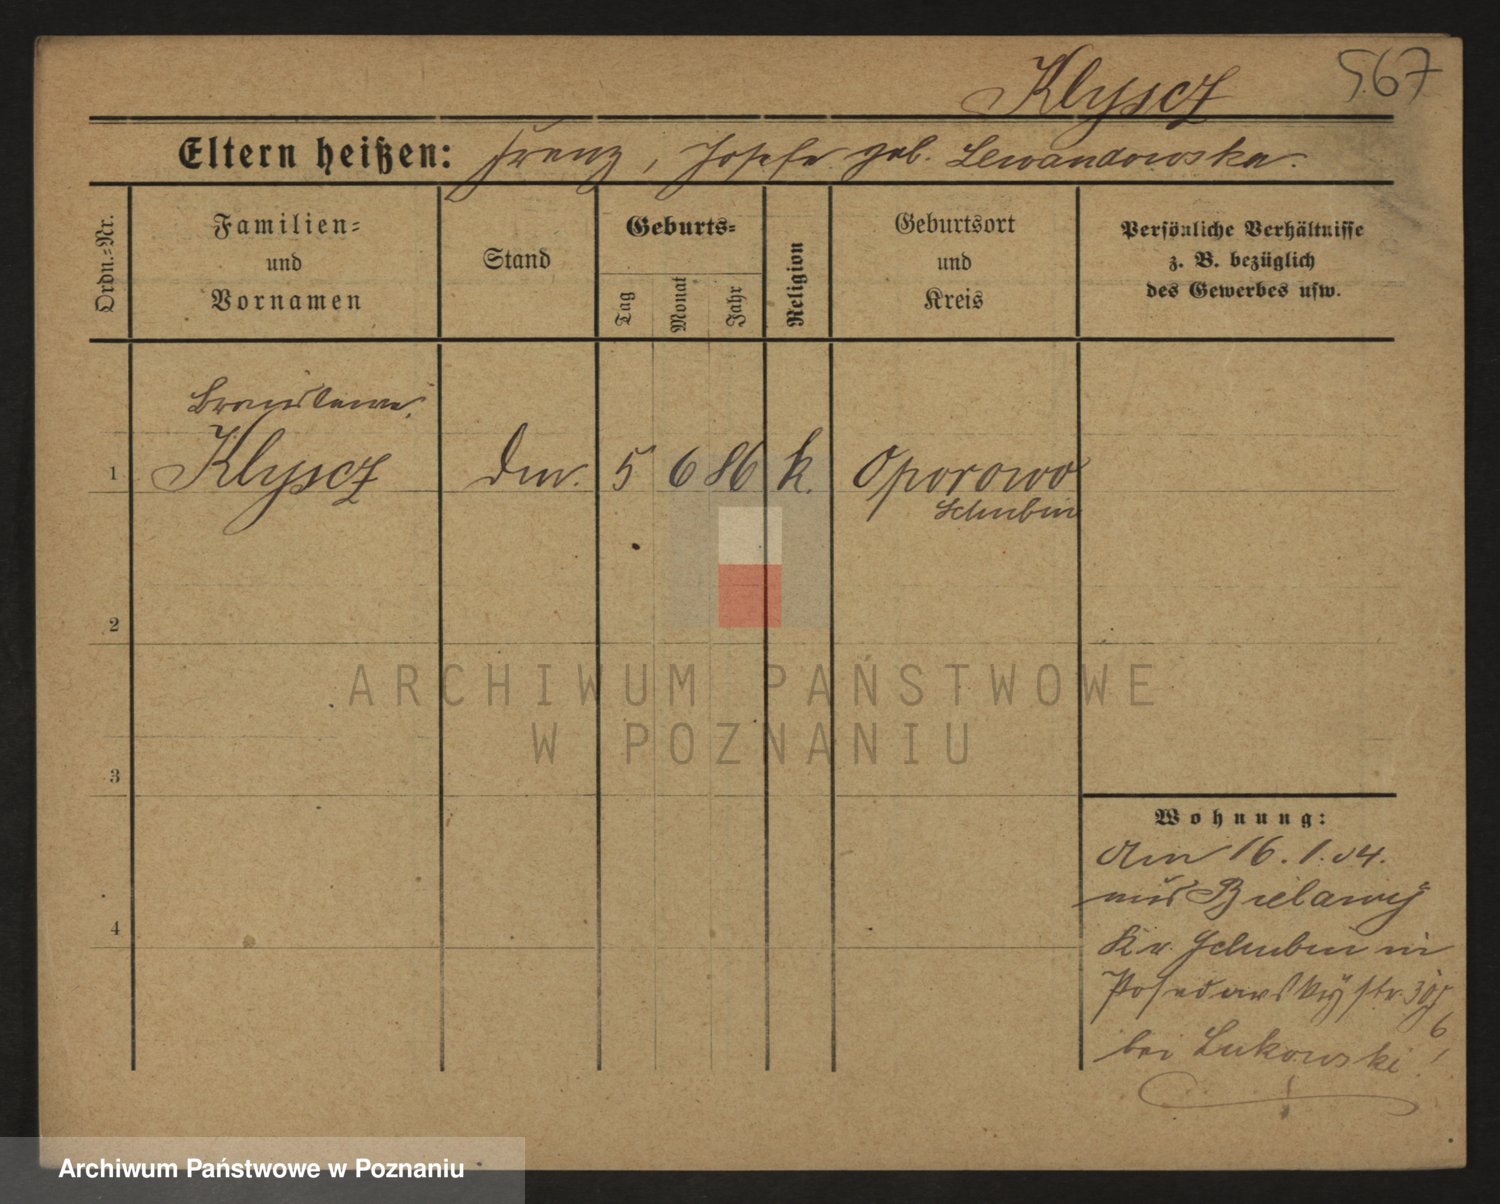 567
Klyscz
Eltern heißen: Franz, Josefa geb. Lewandowska.
Ordn.-Nr.
Familien-
und
Vornamen
Stand
Geburts-
Tag
Monat
Jahr
Religion
Geburtsort
und
Kreis
Persönliche Verhältnisse
z. B. bezüglich
des Gewerbes usw.
Bronislawa
1 Klyscz 5 6 86 k. Oporowo
Schubin
2
ARCHIWUM PAŃSTWOWE
W POZNANIU
3
Wohnung:
Am 16.1.04.
aus Bielawy
4
Kr. Schubin in
bei Lukowski
6
Archiwum Państwowe w Poznaniu